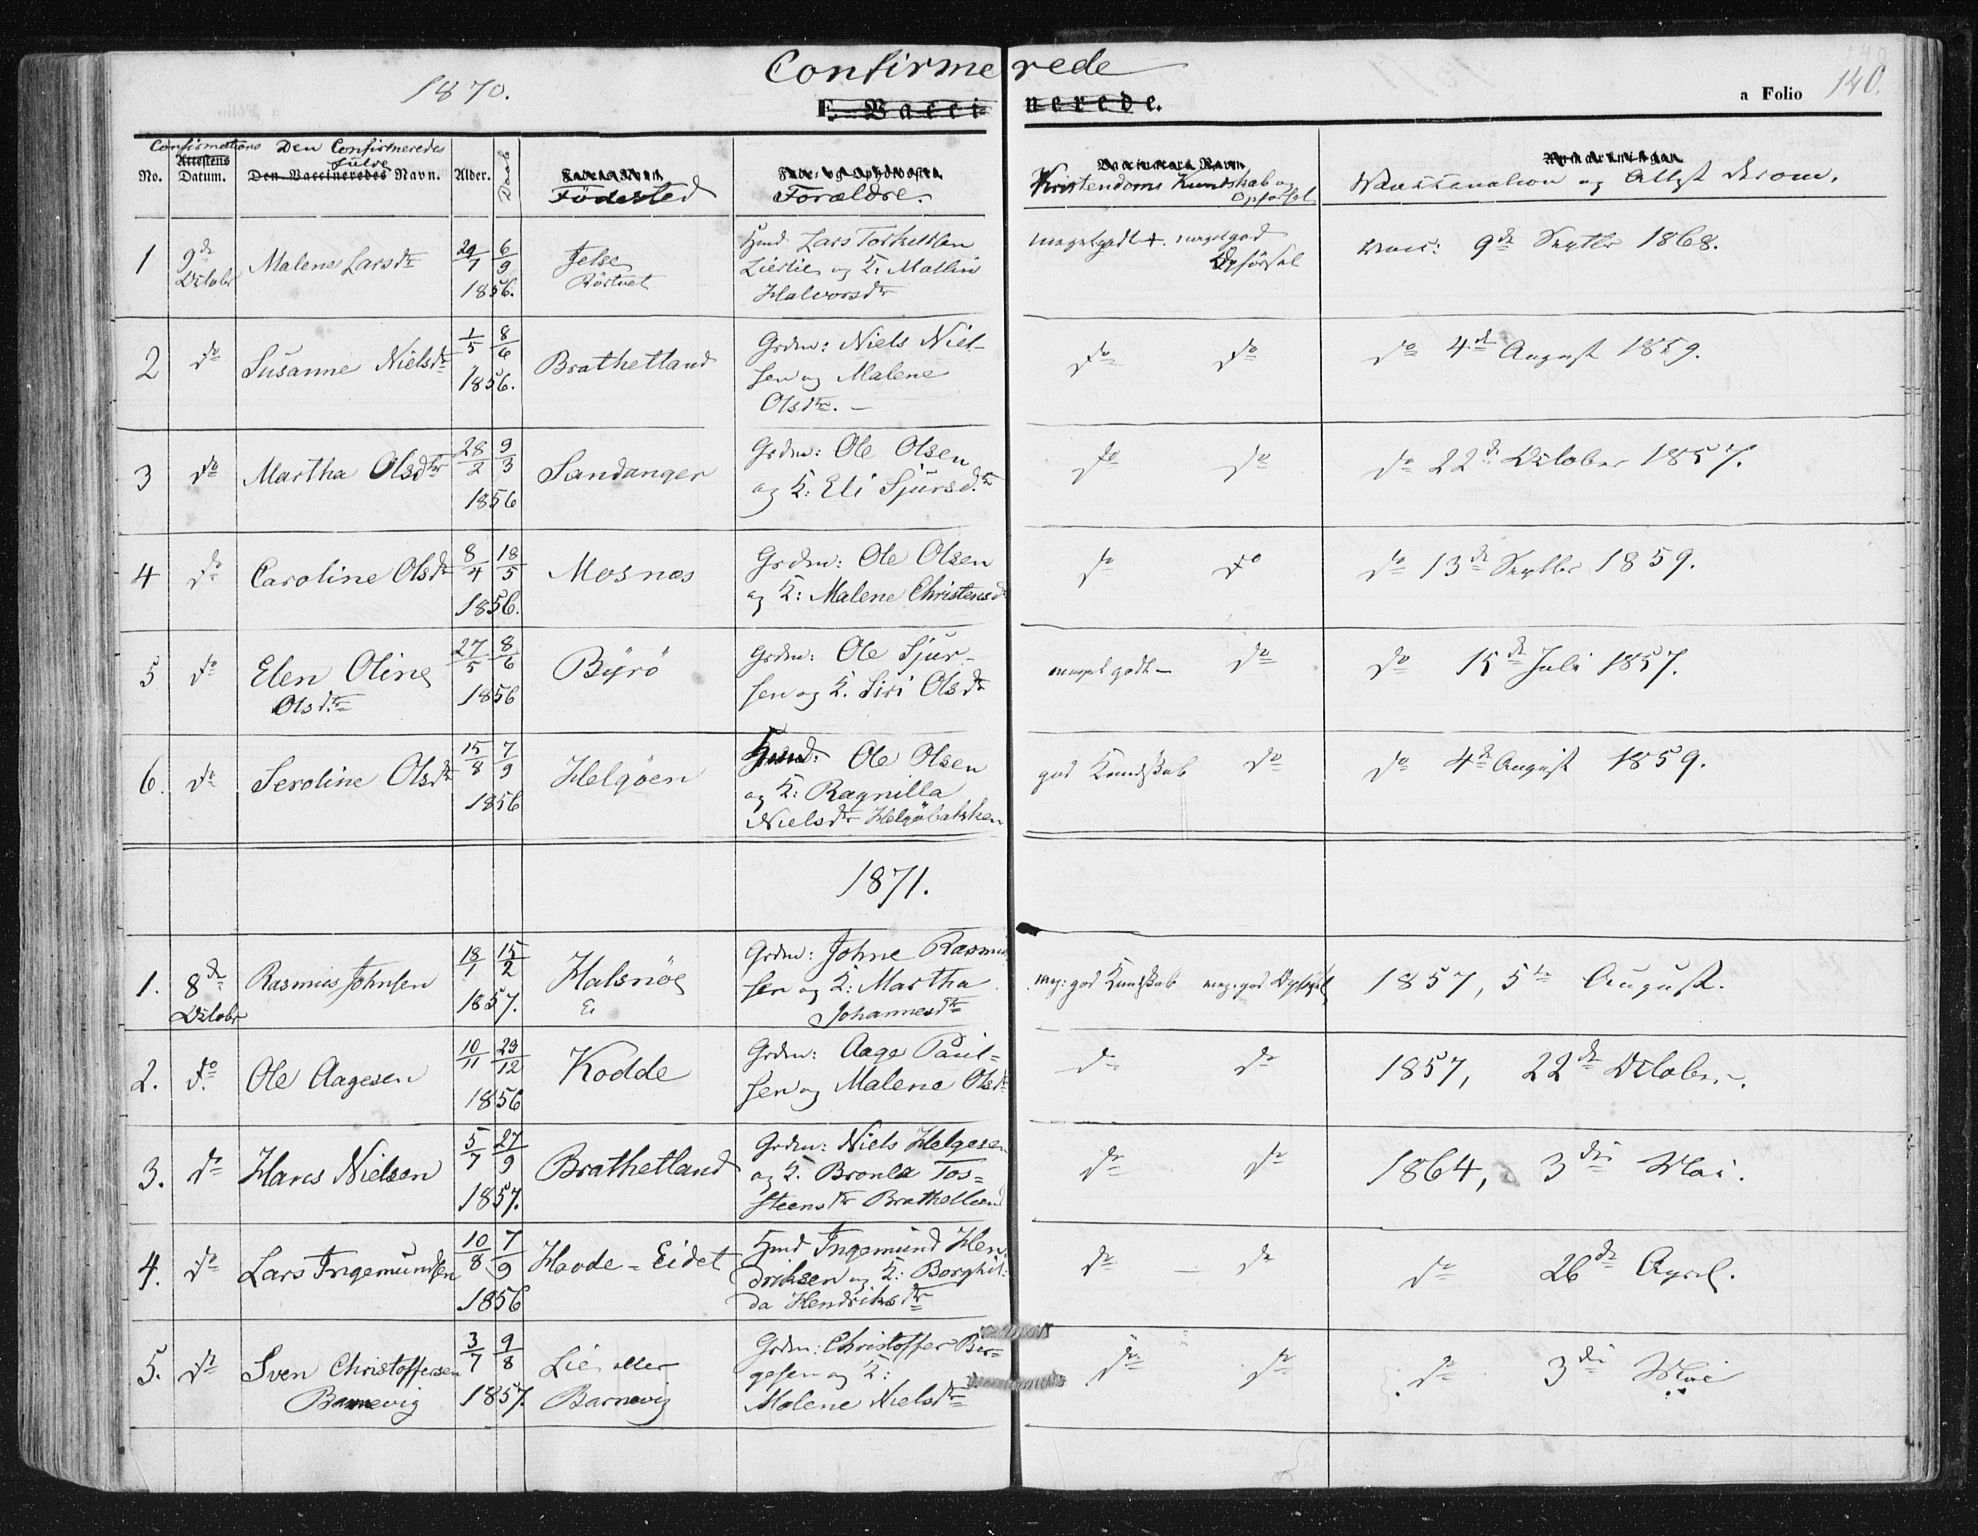 1870.
Confirmerede
E. Vaccinerede.
a Folio 140.
Confirmations Den Confirmeredes
Attestens fulde
No. Datum. Den Vaccineredes Navn. Alder. Daab Födested Forældre. Kristendoms Kundskab og Opförsel Vaccination og Attest derom.
1 9de Octobr Malene Larsdtr 29/7 6/9 1856. Jelse Rörtvet
Hmd Lars Torkeldsen
Lierlie og K: Mallin
Halvorsdtr
megetgodt +. megetgod Opförsel
vacc: 9de Septbr 1868.
2 do Susanne Nielsdtr 1/5 8/6 1856. Brathetland
Grdm: Niels Niel-
sen og Malene
Olsdtr. -
do do do 4de August 1859.
3 do Martha Olsdtr 28/2 9/3 1856 Sandanger
Grdm: Ole Olsen
og K: Eli Sjursdtr
do do do 22de October 1857.
4 do Caroline Olsdtr 8/4 18/5 1856. Mosnæs
Grdm: Ole Olsen
og K: Malene Christensdtr
do do do 13de Septbr 1859.
5 do Elen Oline Olsdtr 27/5 8/6 1856 Byrö
Grdm: Ole Sjur-
sen og K. Siri Olsdtr
meget godt - do do 15de Juli 1857.
6. do Seroline Olsdtr 15/8 7/9 1856 Helgöen
Hmd: Ole Olsen
og K: Ragnilla
Nielsdtr Helgöbakken
god Kundskab do do 4de August 1859.
1871.
1. 8de Octobr Rasmus Johnsen 18/1 15/2 1857. Halsnöe
Grdm: Johne Rasmus
sen og K: Martha
Johannesdtr
meg: god Kundskab meg: god Opförsel 1857, 5te August.
2. do Ole Aagesen 10/11 29/12 1856 Kodde
Grdm: Aage Paul-
sen og Malene Olsdtr
do do 1857, 22de October.
3. do Hans Nielsen 5/7 27/9 1857. Brathetland
Grdm: Niels Helgesen
og K. Bronla Tos-
steensdtr Brathetland
do do 1864, 3die Mai.
4. do Lars Ingemundsen 10/8 7/9 1856 Hovde - Eidet
Hmd Ingemund Hen-
driksen og K: Borghil-
da Hendriksdtr
do - do do 26de April.
5. do Sven Christoffersen Barnevig 3/7 9/8 1857. Lie eller Barnevig
Grdm: Christoffer Bør-
gesen og K:
Malene Nielsdtr
do do do 3die Mai